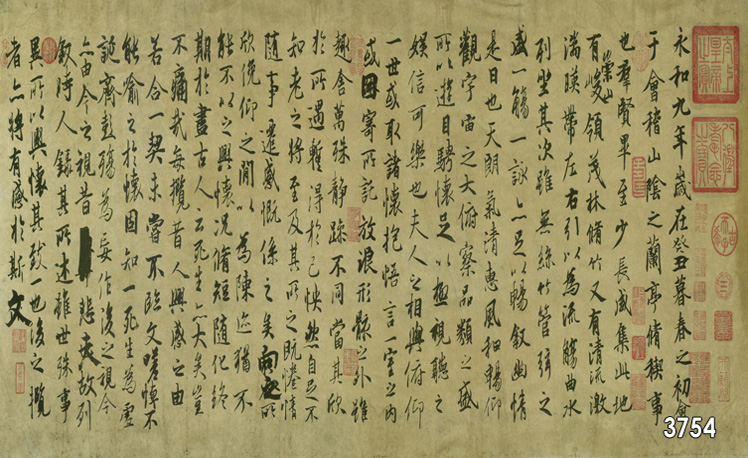 永和九年歲在癸丑暮春之初會
于會稽山陰之蘭亭脩稧事
也羣賢畢至少長咸集此地
有崇山峻領茂林脩竹又有清流激
湍暎帶左右引以為流觴曲水
列坐其次雖無絲竹管弦之
盛一觴一詠亦足以暢敘幽情
是日也天朗氣清惠風和暢仰
觀宇宙之大俯察品類之盛
所以遊目騁懷足以極視聽之
娛信可樂也夫人之相與俯仰
一世或取諸懷抱悟言一室之內
或因寄所託放浪形骸之外雖
趣舍萬殊靜躁不同當其欣
於所遇暫得於己怏然自足不
知老之將至及其所之既惓情
隨事遷感慨係之矣向之所
欣俛仰之間以為陳迹猶不
能不以之興懷況脩短隨化終
期於盡古人云死生亦大矣豈
不痛哉每攬昔人興感之由
若合一契未嘗不臨文嗟悼不
能喻之於懷固知一死生為虛
誕齊彭殤為妄作後之視今
亦由今之視昔悲夫故列
敘時人錄其所述雖世殊事
異所以興懷其致一也後之攬
者亦將有感於斯文
3754